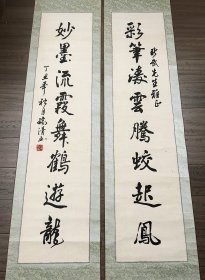 彩筆凌雲騰蛟起鳳
先生雅正
妙墨流霞舞鶴遊龍
丁丑年